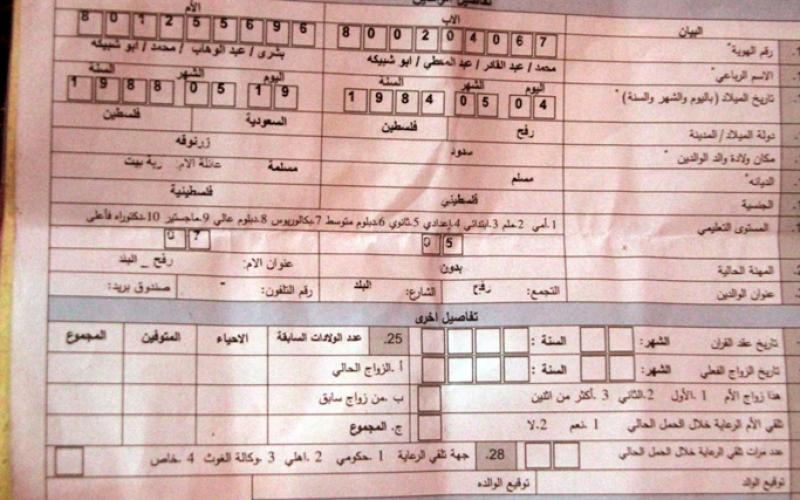 تفاصيل الوالدين
البيان الاب الأم
رقم الهوية * 800204067 801255696
الاسم الرباعي * محمد / عبد القادر / عبد المعطي / ابو شبيكه بشرى / عبد الوهاب / محمد / ابو شبيكه
اليوم الشهر السنة اليوم الشهر السنة
تاريخ الميلاد (باليوم والشهر والسنة) * 04 05 1984 19 05 1988
دولة الميلاد/المدينة رفح فلسطين السعودية فلسطين
مكان ولادة والد الوالدين * سدود زرنوقه
الديانه * مسلم مسلمة عائلة الام: ربة بيت
الجنسية فلسطيني فلسطينية
المستوى التعليمي 1.أمي 2.ملم 3.ابتدائي 4.إعدادي 5.ثانوي 6.دبلوم متوسط 7.بكالوريوس 8.دبلوم عالي 9.ماجستير 10.دكتوراه فأعلى
05 07
المهنة الحالية بدون عنوان الام: رفح _ البلد
عنوان الوالدين التجمع: رفح الشارع: البلد رقم التلفون: - صندوق بريد:
تفاصيل اخرى
تاريخ عقد القران الشهر: السنة : 25. عدد الولادات السابقة الاحياء المتوفين المجموع
تاريخ الزواج الفعلي الشهر: السنة : أ.الزواج الحالي
هذا زواج الأم 1.الأول 2.الثاني 3.أكثر من اثنين ب.من زواج سابق
تلقي الأم الرعاية خلال الحمل الحالي 1.نعم 2.لا ج.المجموع
عدد مرات تلقي الرعاية خلال الحمل الحالي 28. جهة تلقي الرعاية 1.حكومي 2.اهلي 3.وكالة الغوث 4.خاص
توقيع الوالد توقيع الوالده